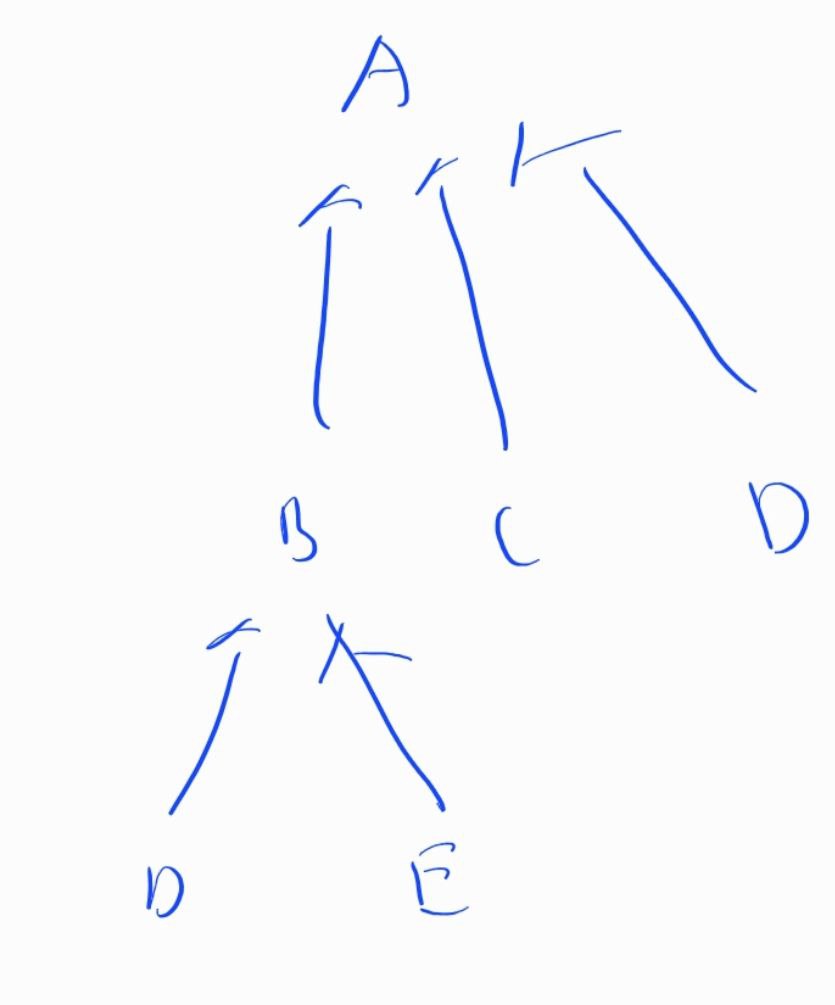 A
B C D
D E